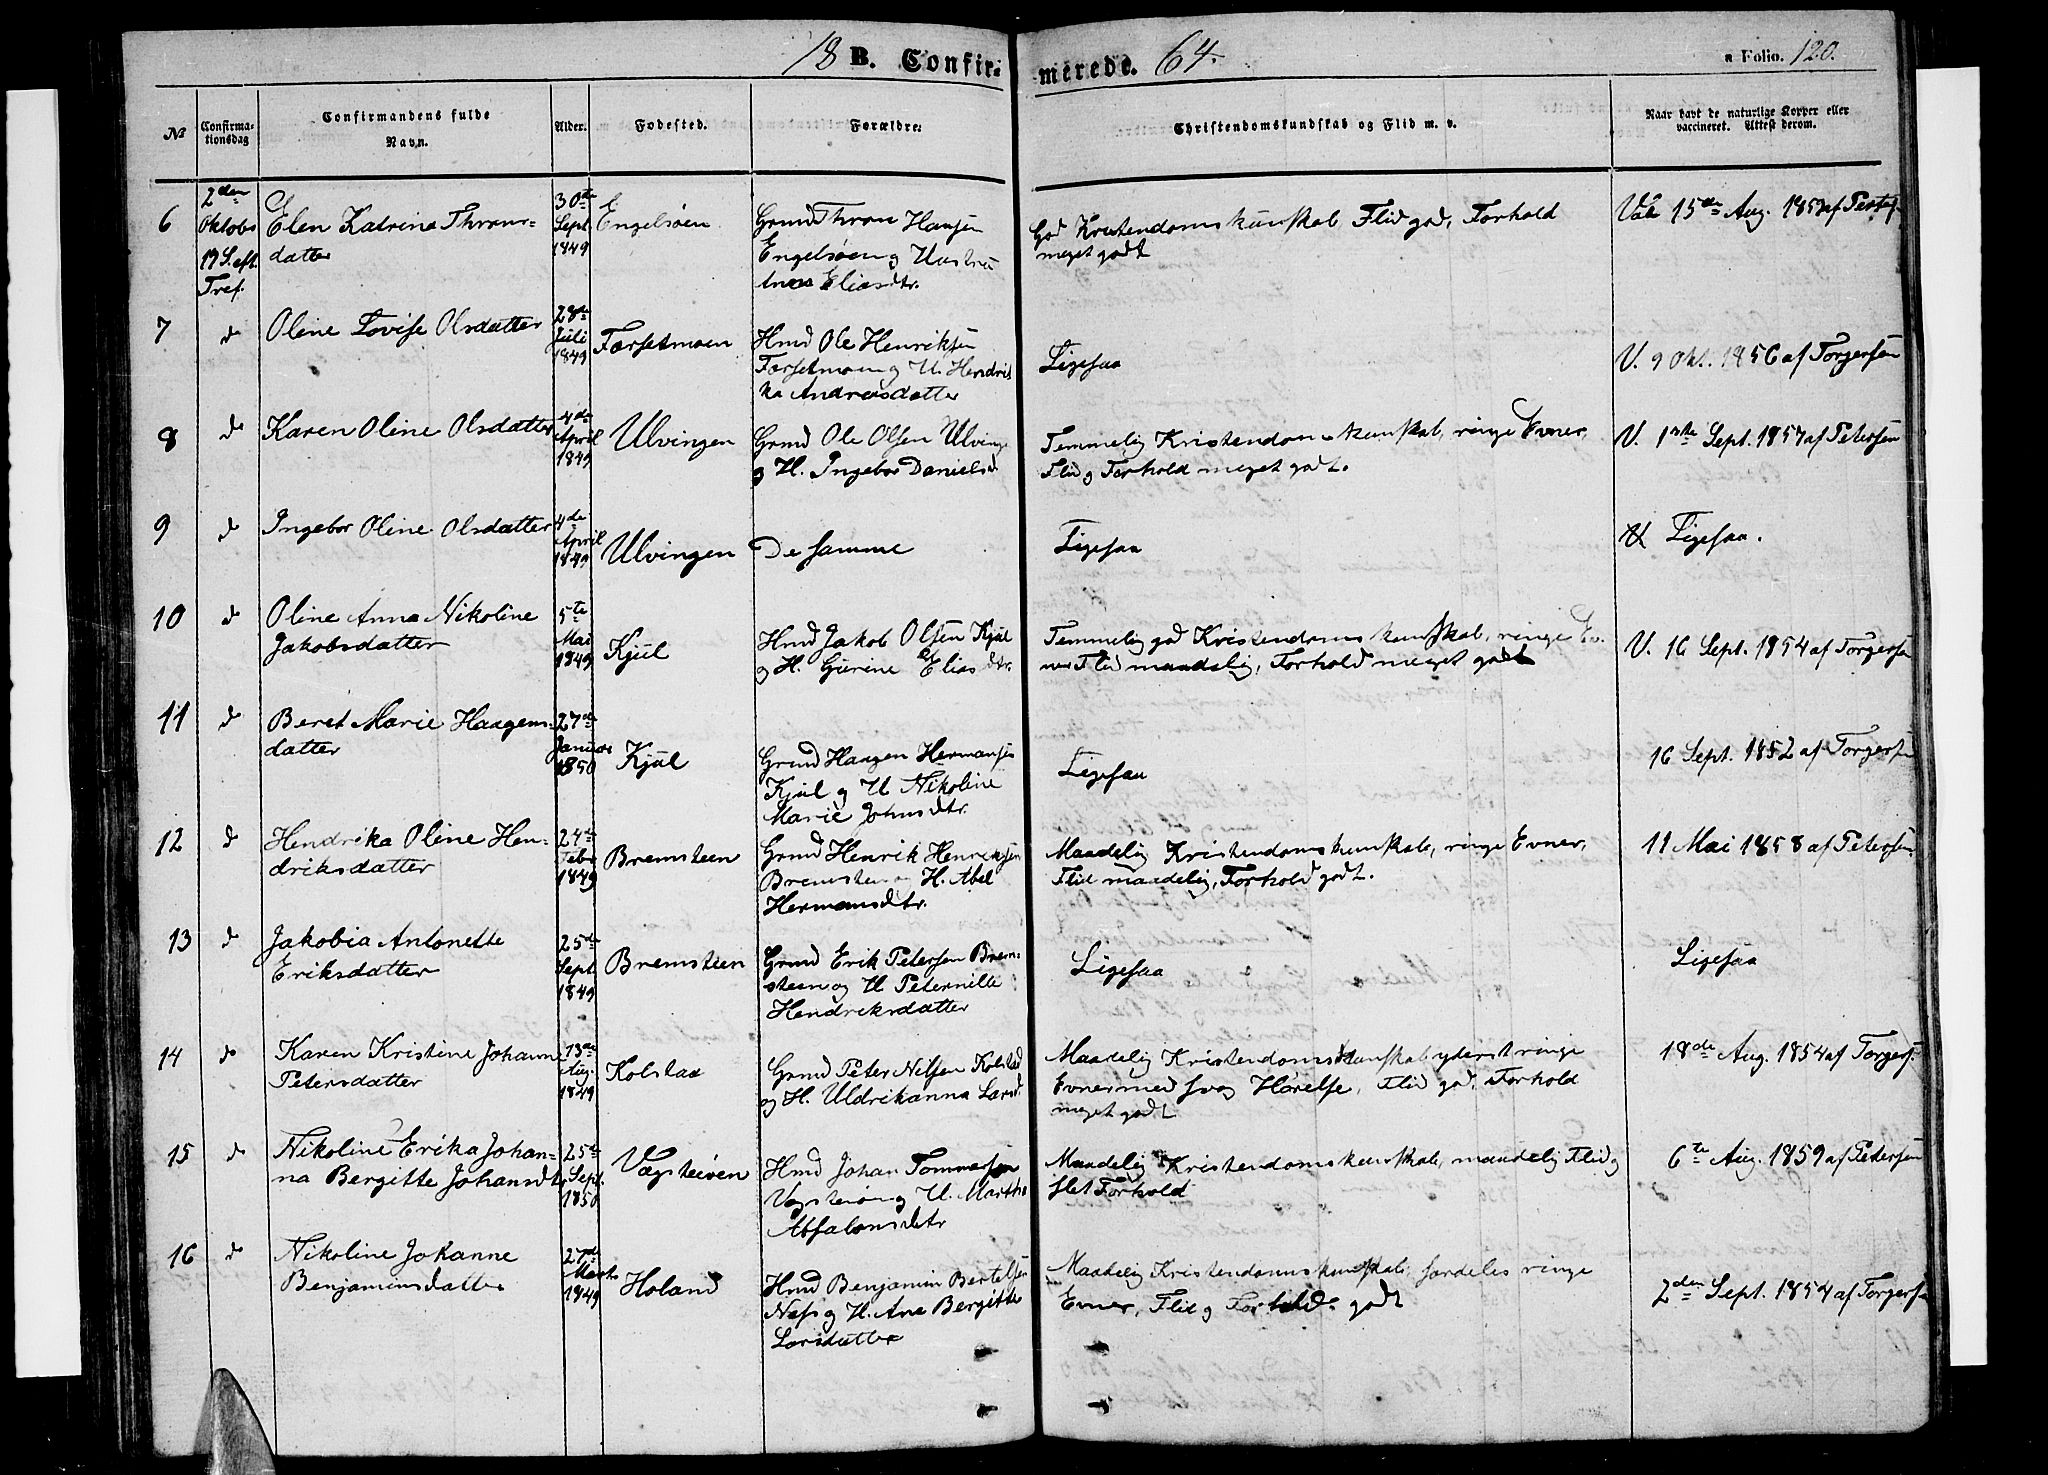 18 B. Confir- merede. 64. a Folio. 120.
No
Confirma-
tionsdag
Confirmandens fulde
Navn.
Alder.
Fodested.
Forældre.
Christendomskundskab og Flid m. v.
Naar havt de naturlige Kopper eller
vaccineret. Attest derom.
6
2den
Oktober
19 S. eft.
Tref.
Elen Katrina Throns-
datter
30te
Sept
1849
Engelsøen
Grmd Thron Hansen
Engelsøen og
Eliasdtr.
God Kristendomskunskab, Flid god, Forhold
meget godt
Vac 15de Aug. 1853 af
7
d
Oline Lovise Olsdatter
28de
Juli
1849
Forsetmoen
Hmd Ole Henriksen
Forsetmoen og H. Hendri
ka Andreasdatter
Ligesaa
V. 9 Okt. 1856 af Torgersen
8
do
Karen Oline Olsdatter
4de
April
1849
Ulvingen
Grmd Ole Olsen Ulvinge
og H. Ingebor Danielsd
Temmelig Kristendomskunskab, ringe Evner,
Flid og Forhold meget godt.
V. 1ste Sept. 1857 af Petersen
9
d
Ingebor Oline Olsdatter
4de
April
1849
Ulvingen
De samme
Ligesaa
V Ligesaa.
10
d
Oline Anna Nikoline
Jakobsdatter
5te
Mai
1849
Kjul
Hmd Jakob Olsen Kjul
og H. Gurine Eliasdtr.
Temmelig god Kristendomskunskab, ringe Ev-
ner Flid maadelig, Forhold meget godt
V. 16 Sept. 1854 af Torgersen
11
d
Beret Marie Haagens-
datter
27de
Januar
1850
Kjul
Grmd Haagen Hermansen
Kjul og H Nikoline
Marie Johnsdtr.
Ligesaa
16 Sept. 1852 af Torgersen
12
d
Hendrika Oline Hen-
driksdatter
24de
Febr
1849
Bremsteen
Grmd Henrik Henriksen
Bremsten og H. Abel
Hermansdtr.
Maadelig Kristendomskunskab, ringe Evner,
Flid maadelig, Forhold godt.
11 Mai 1858 af Petersen.
13
d
Jakobia Antonette
Eriksdatter
25de
Sept
1849
Bremsteen
Grmd Erik Petersen Brem-
steen og H Peternille
Hendriksdatter
Ligesaa
Ligesaa
14
do
Karen Kristine Johanne
Petersdatter
13de
Aug.
1849
Kolstad
Grmd Peter Nilsen Kolstad
og H. Uldrikanna Larsd
Maadelig Kristendomskunskab yderst ringe
Evner med svag Hørelse, Flid god, Forhold
meget godt
18de Aug. 1854 af Torgers.
15
do
Nikoline Erika Johan-
na Bergitte Johansdt.
25de
Sept.
1850
Vægsteiven
Hmd Johan Tommesen
og H. Martha
Absalonsdtr
Maadelig Kristendomskunskab, maadelig Flid og
slet Forhold
6te Aug. 1859 af Petersen
16
d
Nikoline Johanne
Benjaminsdatter
27de
Marts
1849
Holand
Hmd Benjamin Bertelsen
Næss og H. Ane Bergitte
Larsdatter
Maadelig Kristendomskunskab, særdeles ringe
Evner, Flid og Forhold godt
2den Sept. 1854 af Torgersen